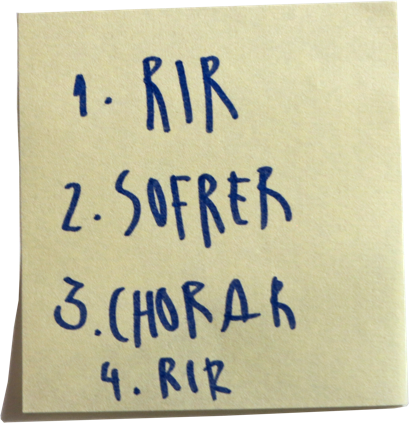 1. RIR
2. SOFRER
3. CHORAR
4. RIR